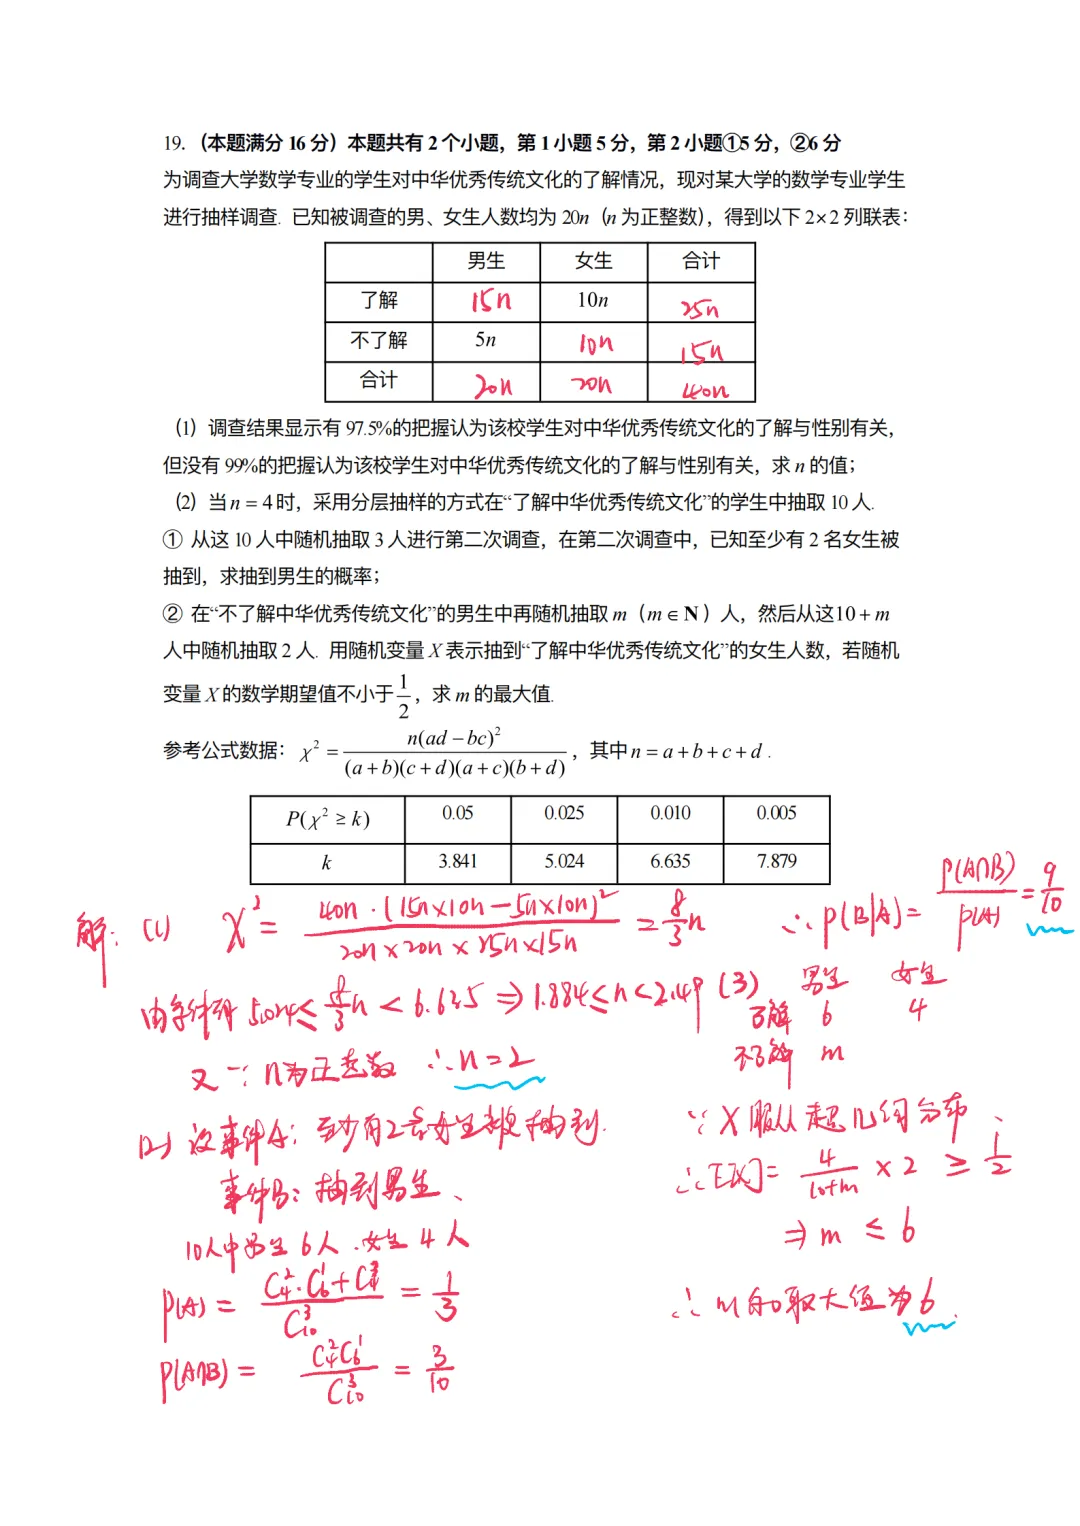 19.（本题满分 16 分）本题共有 2 个小题，第 1 小题 5 分，第 2 小题①5 分，②6 分
为调查大学数学专业的学生对中华优秀传统文化的了解情况，现对某大学的数学专业学生
进行抽样调查. 已知被调查的男、女生人数均为 20n（n 为正整数），得到以下 2×2 列联表：
男生 女生 合计
了解 15n 10n 25n
不了解 5n 10n 15n
合计 20n 20n 40n
（1）调查结果显示有 97.5%的把握认为该校学生对中华优秀传统文化的了解与性别有关，
但没有 99%的把握认为该校学生对中华优秀传统文化的了解与性别有关，求 n 的值；
（2）当 n = 4 时，采用分层抽样的方式在“了解中华优秀传统文化”的学生中抽取 10 人.
① 从这 10 人中随机抽取 3 人进行第二次调查，在第二次调查中，已知至少有 2 名女生被
抽到，求抽到男生的概率；
② 在“不了解中华优秀传统文化”的男生中再随机抽取 m（m ∈ N）人，然后从这10 + m
人中随机抽取 2 人. 用随机变量 X 表示抽到“了解中华优秀传统文化”的女生人数，若随机
变量 X 的数学期望值不小于 1/2，求 m 的最大值.
参考公式数据：χ² = n(ad − bc)² / (a + b)(c + d)(a + c)(b + d)，其中 n = a + b + c + d .
P(χ² ≥ k) 0.05 0.025 0.010 0.005
k 3.841 5.024 6.635 7.879
解: (1) χ² = 40n·(15n×10n−5n×10n)² / 20n×20n×25n×15n = 8/3 n
由条件得 5.024 ≤ 8/3 n < 6.635 ⇒ 1.884 ≤ n < 2.49
又∵ n为正整数 ∴ n=2
(2) 设事件A: 至少有2名女生被抽到.
事件B: 抽到男生、
10人中男生6人.女生4人
P(A) = C₄²·C₆¹+C₄³ / C₁₀³ = 1/3
P(A∩B) = C₄²C₆¹ / C₁₀³ = 3/10
∴ P(B|A) = P(A∩B) / P(A) = 9/10
(3) 男生 女生
了解 6 4
不了解 m
∵ X服从超几何分布、
∴ E[X] = 4/10+m × 2 ≥ 1/2
⇒ m ≤ 6
∴ m的取大值为6.